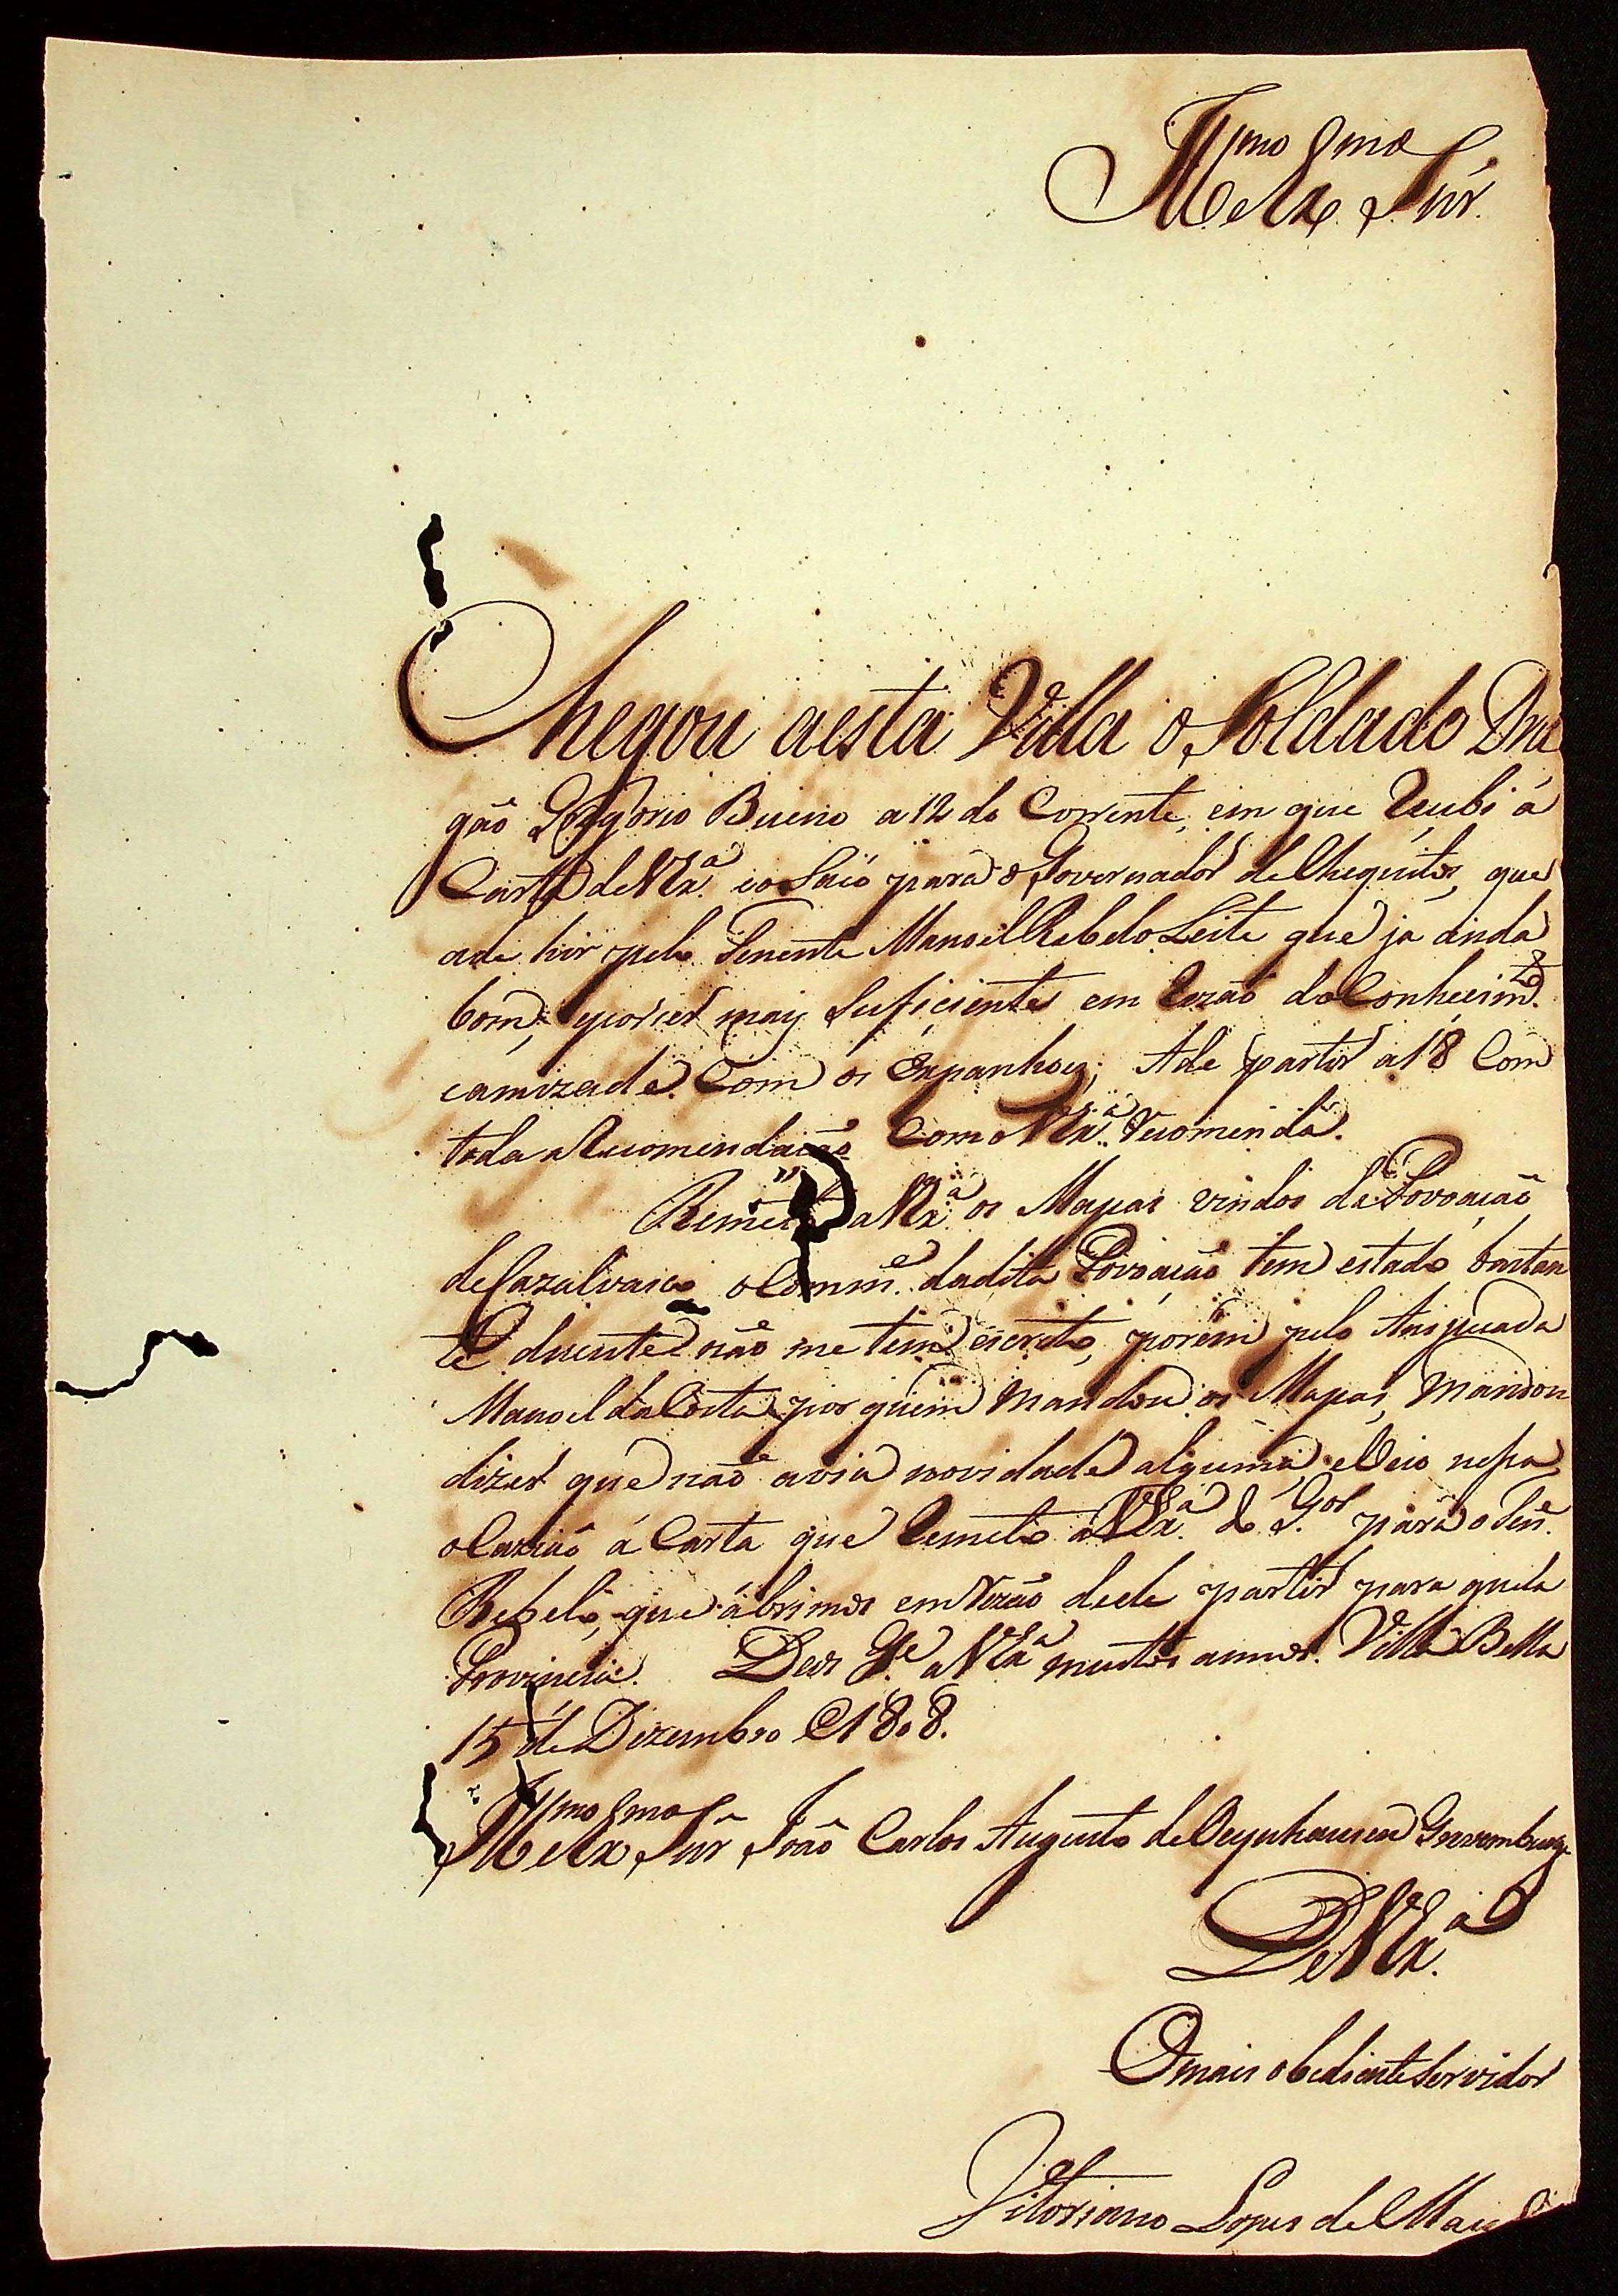 Illmo e Exmo Snr.
Chegou aesta Villa o Soldado Dra
gão Gregorio Bueno a 12 do Corrente, em que Recebi á
Carta de VExa. eo Saco para o Governador de Chequitos, que
ade hir pelo Tenente Manoel Rebelo Leite que já anda
bom, por ser mais Suficiente em rezão do Conhecimto.
eamizade Com os Expanhoes; Ade partir a 18 Com
toda aRecomendação Como VExa. Recomenda.
Remeto a VExa os Mapas vindos da Povoação
de Cazalvasco o Comme. dadita Povoação tem estado bastan
te duente não me tem escrito, porém pelo Anspeçada
Manoel da Costa por quem mandou os Mapas, Mandou
dizer que não avia novidade alguma, e Veio nesa
oCazião á Carta que Remeto a VExa. do Gor para o Tene.
Rebelo, que ábrimos em Rezão dede partir para quela
Provincia. Deos Ge. a VExa muitos annos. Villa Bella
15 de Dezembro de 1808.
Illmo e Exmo Snr João Carlos Augusto de Oeynhausen Grevemburg
De VExa.
O mais obediente Servidor
Vitoriano Lopes de